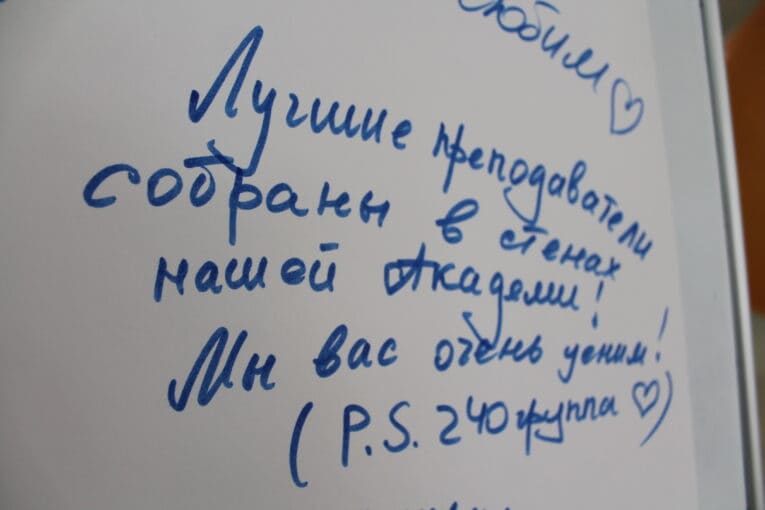 любим ♡
Лучшие преподаватели
собраны в стенах
нашей Академи!
Мы вас очень ценим!
(P.S. 240 группа ♡)